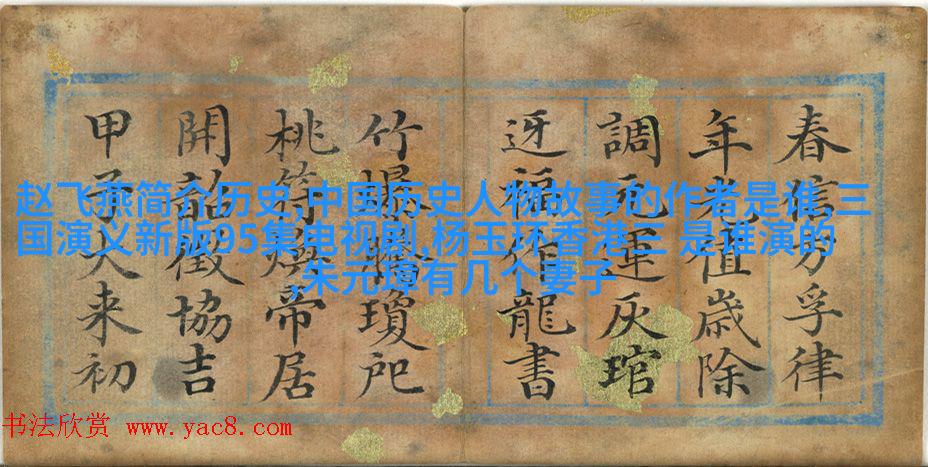 春信方孚律
年光值歲除
調元運灰琯
迓福作龍書
竹爆聯瓊
桃符煥帝居
開韶徵協吉
甲子大来初
赵飞燕简介历史,中国历史人物故事的作者是谁,三
国演义新版95集电视剧,杨玉环香港三 是谁演的
,朱元璋有几个妻子
书法欣赏 www.yac8.com